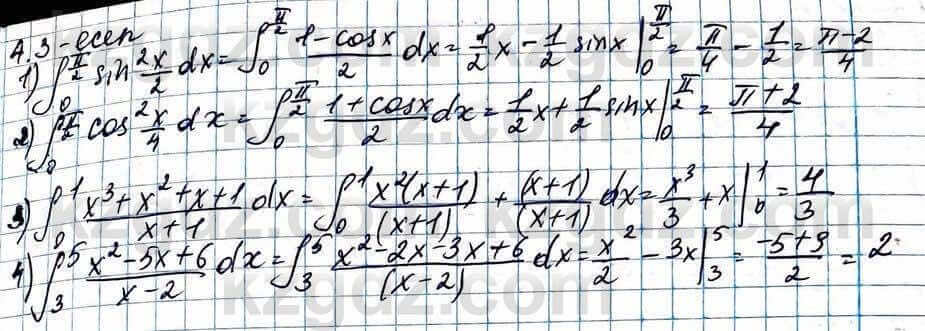 4.3-есеп
1) ∫₀^(π/2) sin² x/2 dx = ∫₀^(π/2) (1-cosx)/2 dx = 1/2 x - 1/2 sinx |₀^(π/2) = π/4 - 1/2 = (π-2)/4
2) ∫₀^(π/2) cos² x/4 dx = ∫₀^(π/2) (1+cosx)/2 dx = 1/2 x + 1/2 sinx |₀^(π/2) = (π+2)/4
3) ∫₀¹ (x³+x²+x+1)/(x+1) dx = ∫₀¹ x²(x+1)/(x+1) + (x+1)/(x+1) dx = x³/3 + x |₀¹ = 4/3
4) ∫₃⁵ (x²-5x+6)/(x-2) dx = ∫₃⁵ (x²-2x-3x+6)/(x-2) dx = x²/2 - 3x |₃⁵ = (-5+9)/2 = 2